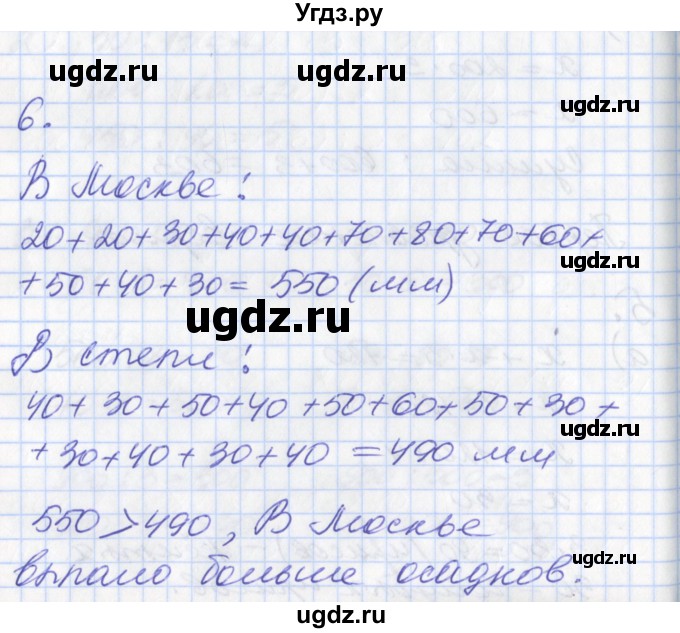 Угдз.ру
ugdz.ru ugdz.ru ugdz.ru
6.
В Москве:
20+20+30+40+40+70+80+70+60+
ugdz.ru
+50+40+30= 550 (мм)
ugdz.ru
В степи:
40+30+50+40+50+60+50+30+
ugdz.ru
+30+40+30+40 =490 мм
550>490, В Москве
выпало больше осадков.
ugdz.ru ugdz.ru
ugdz.ru